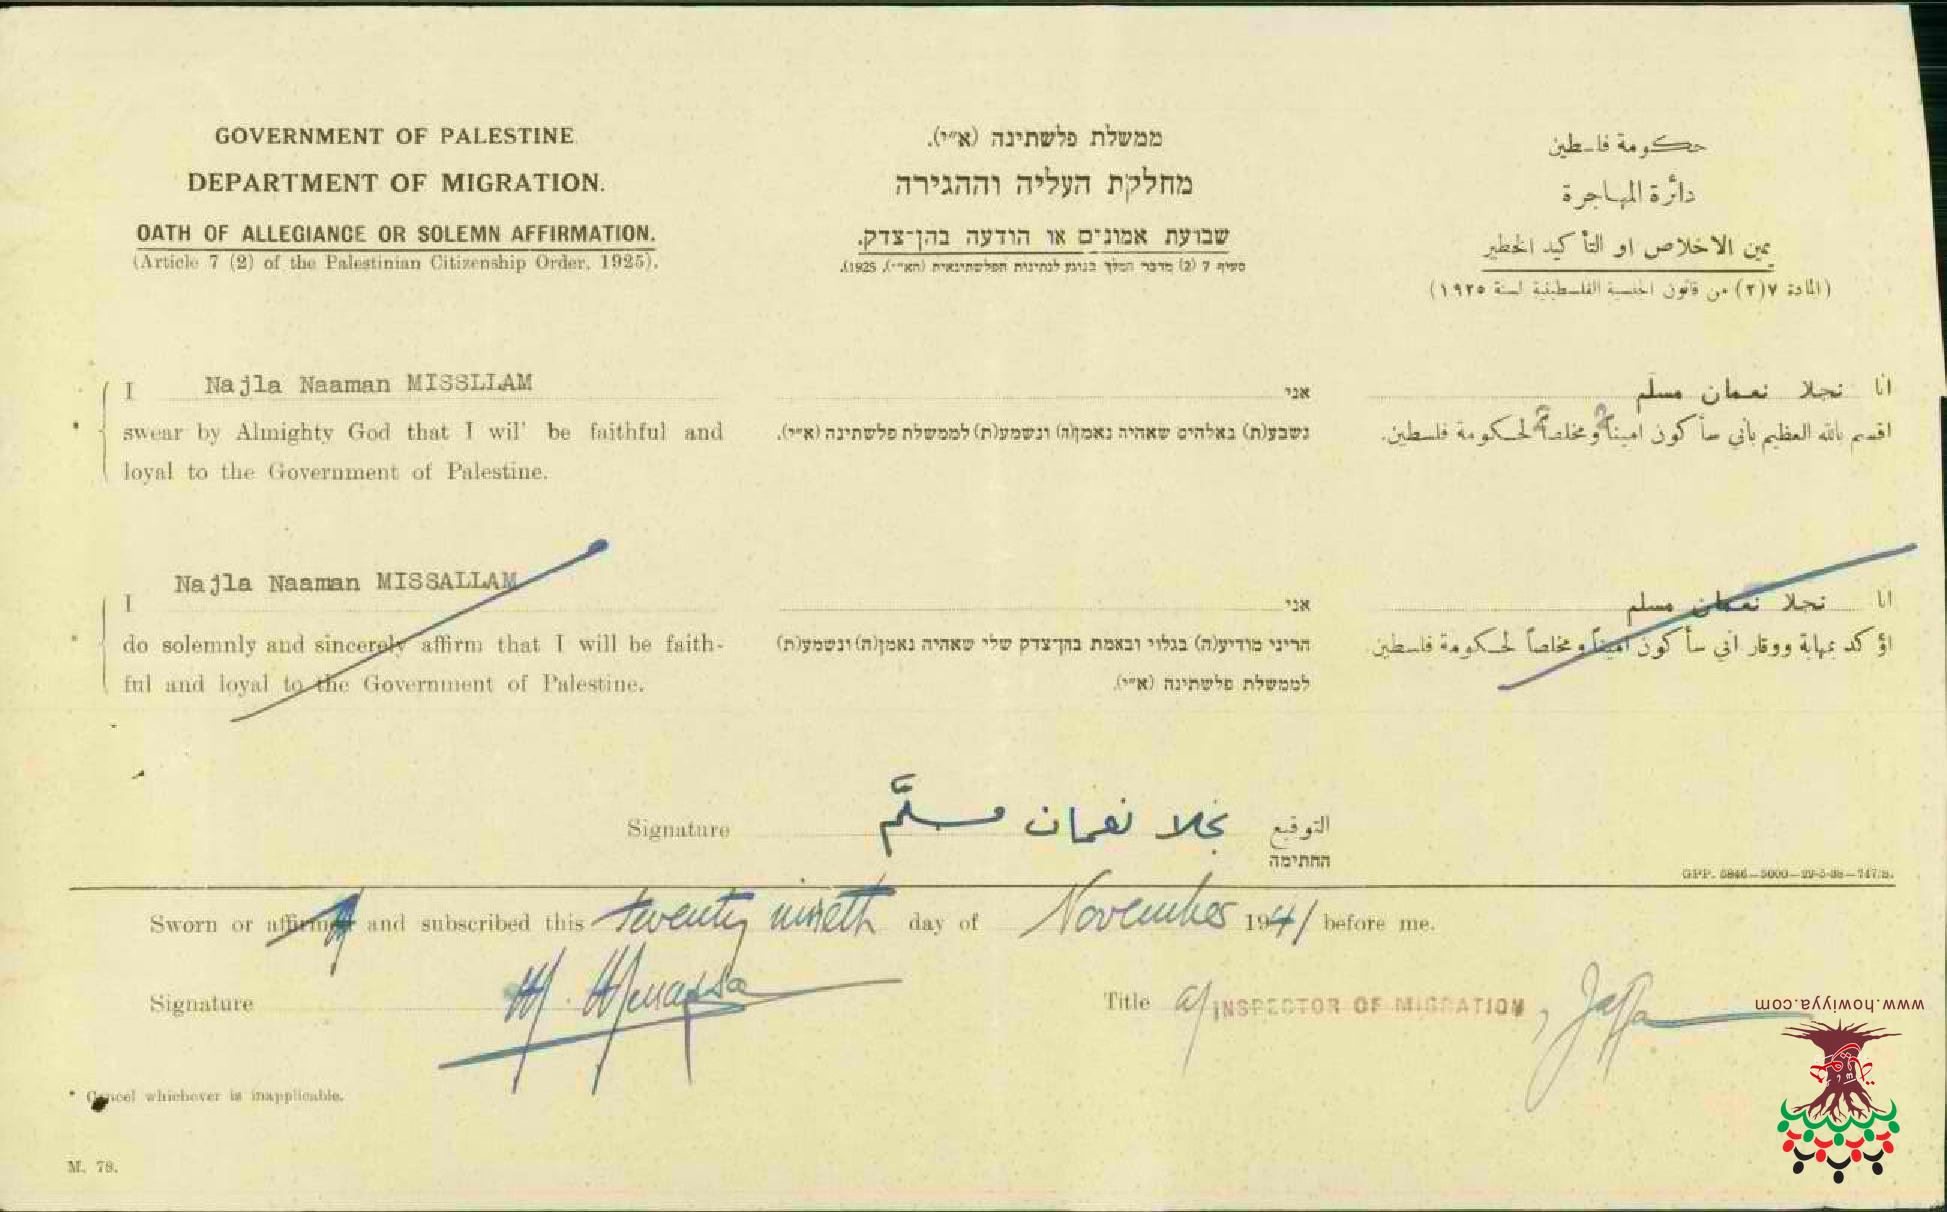 GOVERNMENT OF PALESTINE
DEPARTMENT OF MIGRATION.
OATH OF ALLEGIANCE OR SOLEMN AFFIRMATION.
(Article 7 (2) of the Palestinian Citizenship Order, 1925).
ממשלת פלשתינה (א״י).
מחלקת העליה וההגירה
שבועת אמונים או הודעה בהן־צדק.
סעיף 7 (2) מדבר המלך בנוגע לנתינות הפלשתינאית (הא״י), 1925).
حكومة فلسطين
دائرة المهاجرة
يمين الاخلاص او التأكيد الخطير
(المادة ٧(٢) من قانون الجنسية الفلسطينية لسنة ١٩٢٥)
I Najla Naaman MISSLLAM
swear by Almighty God that I wil' be faithful and
loyal to the Government of Palestine.
אני
נשבע(ת) באלהים שאהיה נאמן(ה) ונשמע(ת) לממשלת פלשתינה (א״י).
انا نجلا نعمان مسلم
اقسم بالله العظيم بأني سأكون اميناً ومخلصاً لحكومة فلسطين.
I Najla Naaman MISSALLAM
do solemnly and sincerely affirm that I will be faith-
ful and loyal to the Government of Palestine.
אני
הריני מודיע(ה) בגלוי ובאמת בהן־צדק שלי שאהיה נאמן(ה) ונשמע(ת)
לממשלת פלשתינה (א״י).
انا نجلا نعمان مسلم
اؤكد بمهابة ووقار اني سأكون اميناً ومخلصاً لحكومة فلسطين
Signature نجلا نعمان مسلّم التوقيع
החתימה
GPP. 5846—5000—29-5-38—747/S.
Sworn or affirmed and subscribed this twenty nineth day of November 1941 before me.
Signature
Title a/INSPECTOR OF MIGRATION, Jaffa
* Cancel whichever is inapplicable.
M. 78.
www.howiyya.com